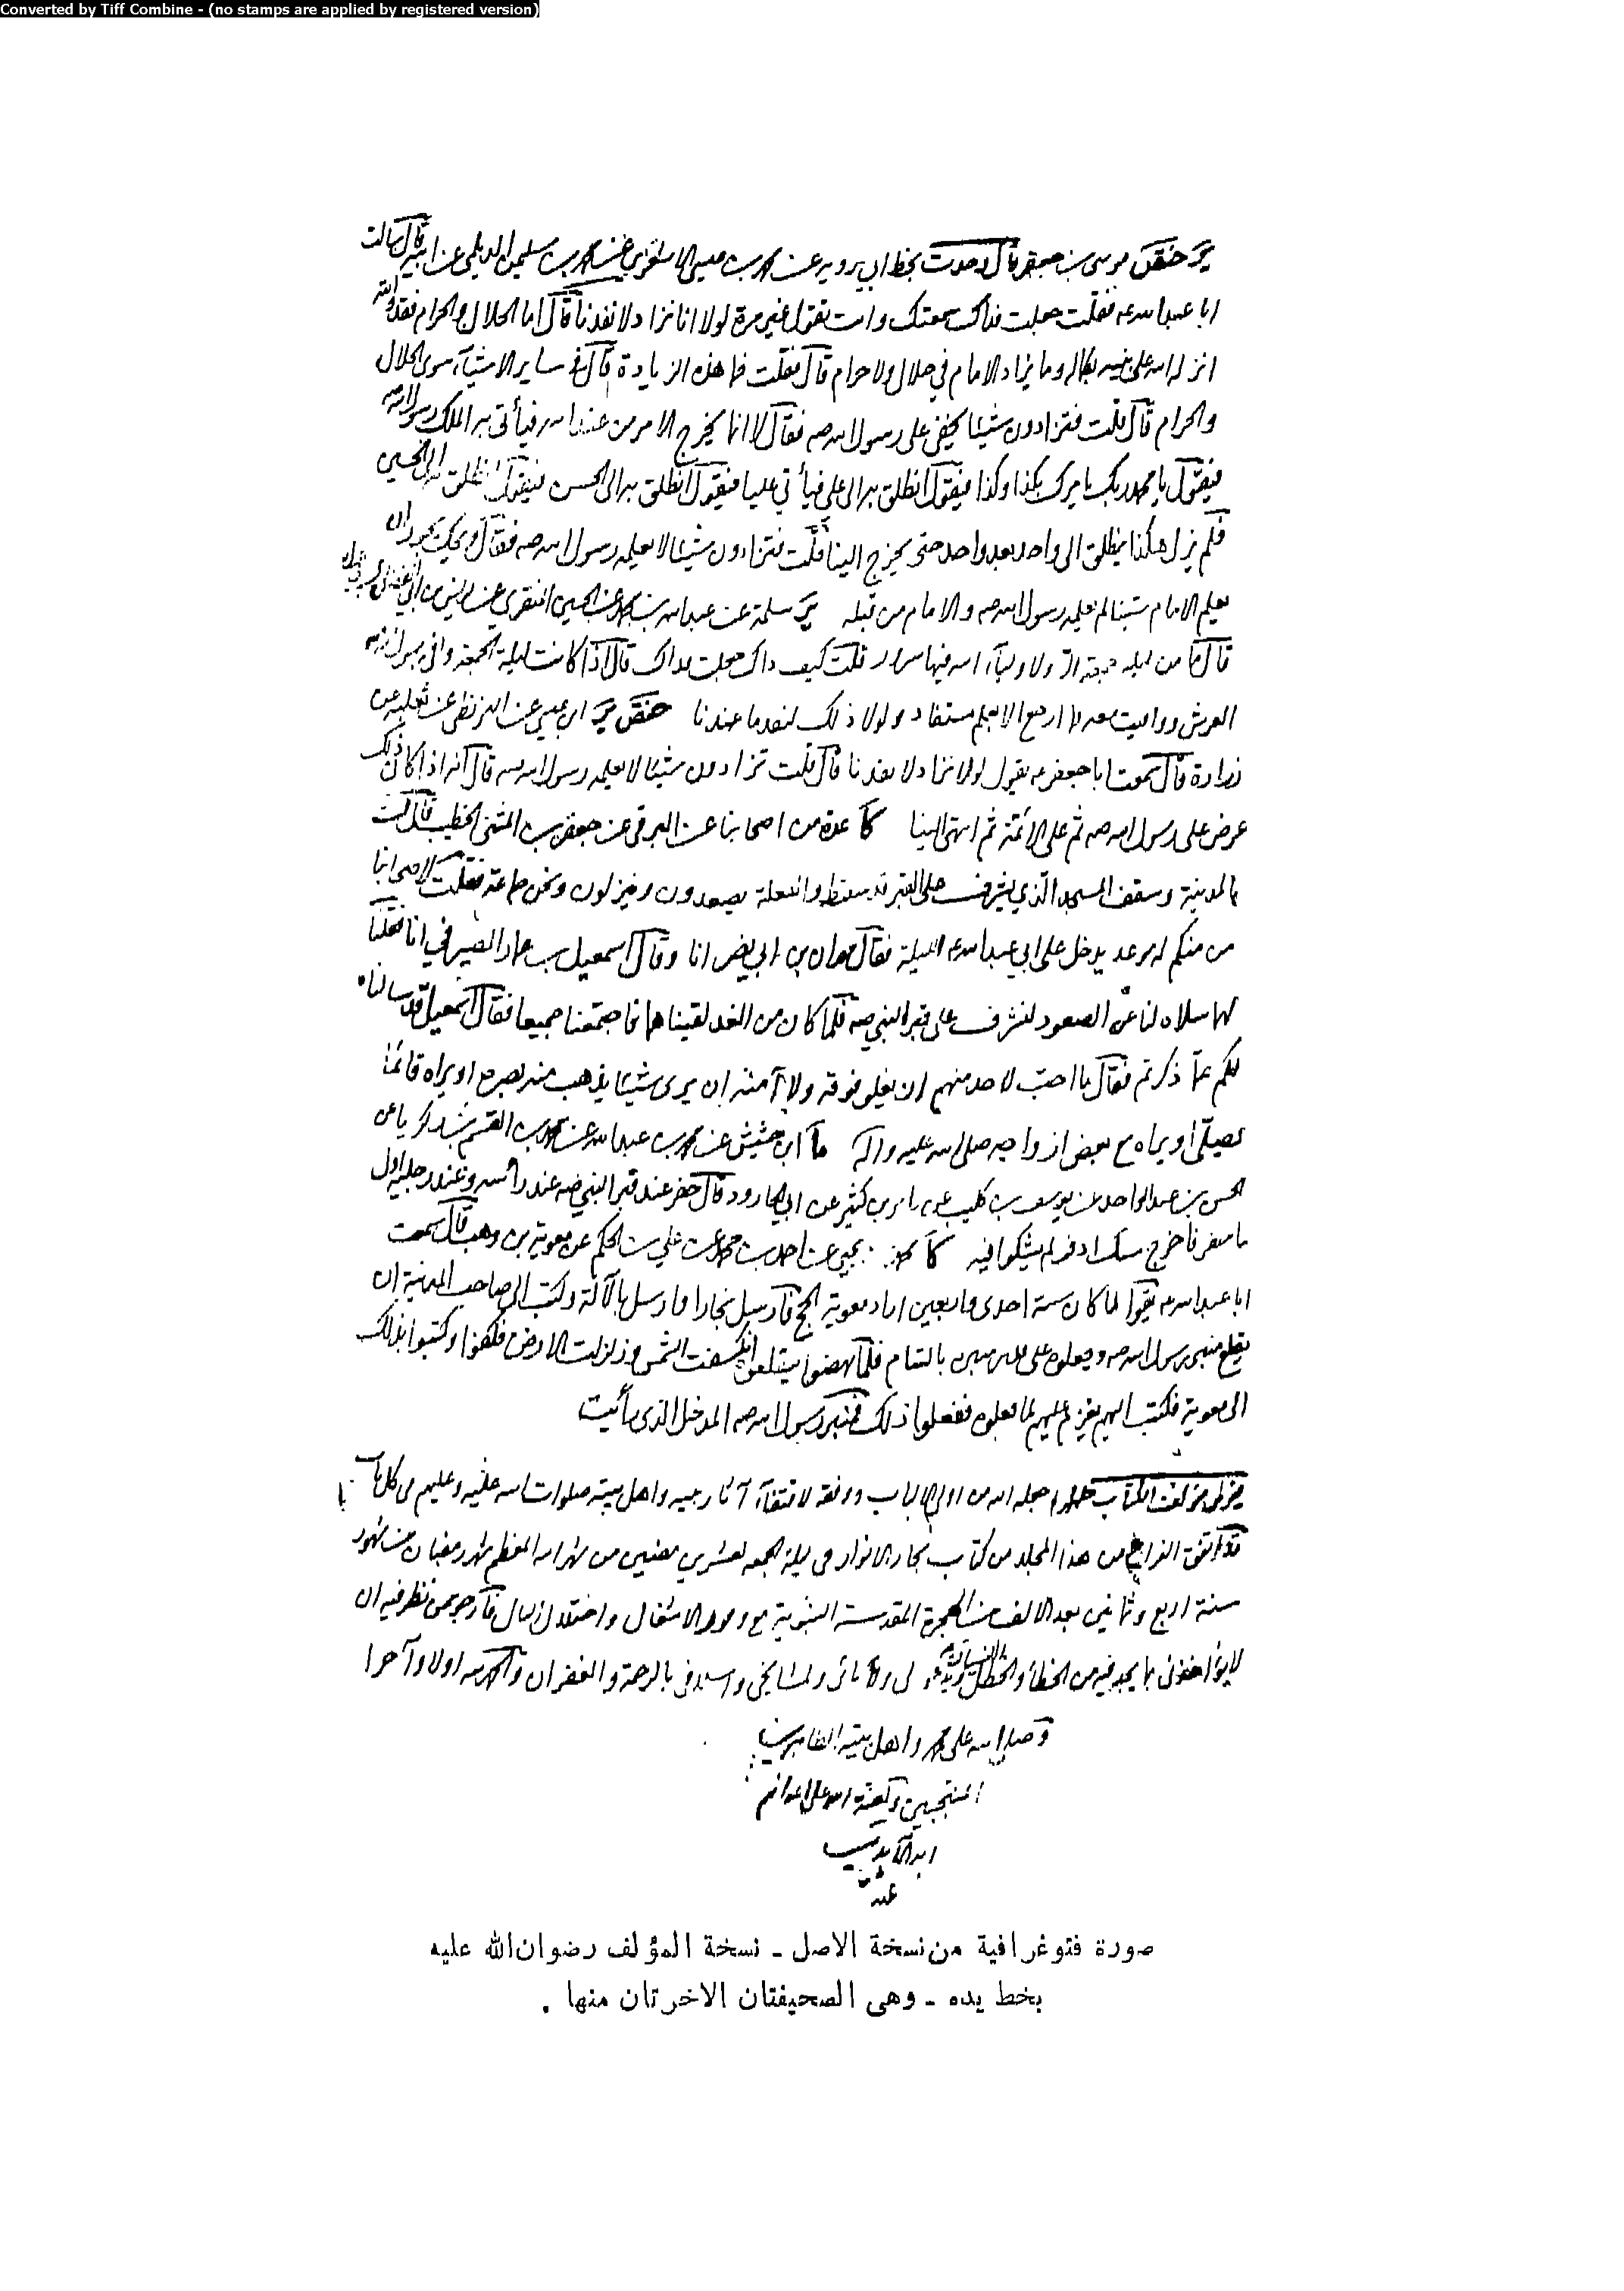 Converted by Tiff Combine - (no stamps are applied by registered version)
موسى بن جعفر قال وجدت بخط ابي يرويه عن محمد بن عيسى الاشعري عن محمد بن سليمن الديلمي عن ابيه قال سالت
ابا عبد الله ع فقلت جعلت فداك سمعتك وانت تقول غير مرة لولا انا نزاد لانفدنا قال اما الحلال والحرام فقد والله
انزله الله على نبيه بكماله وما يزاد الامام في حلال ولا حرام قال فقلت فما هذه الزيادة قال في ساير الاشيآء سوى الحلال
والحرام قال قلت فتزادون شيئا يخفى على رسول الله ص فقال لا انما يخرج الامر من عند الله فيأتي به الملك رسول الله ص
فيقول يا محمد ربك يامرك بكذا وكذا فيقول انطلق به الى علي فيأتي عليا فيقول انطلق به الى الحسن فيقول انطلق به الى الحسين
فلم يزل هكذا ينطلق الى واحد بعد واحد حتى يخرج الينا قلت فتزادون شيئا لا يعلمه رسول الله ص فقال ويحك يجوز ان
يعلم الامام شيئا لم يعلمه رسول الله ص والامام من قبله سلمة عن عبد الله بن محمد عن الحسين المنقري عن
قال ما من ليلة جمعة الا ولاوليآء الله فيها سرور قلت كيف ذاك جعلت فداك قال اذا كانت ليلة الجمعة وافى رسول الله ص
العرش ووافيت معه فما ارجع الا بعلم مستفاد ولولا ذلك لنفد ما عندنا ابن عيسى عن البزنطي عن ثعلبة عن
زرارة قال سمعت ابا جعفر ع يقول لولا نزاد لانفدنا قال قلت تزادون شيئا لا يعلمه رسول الله ص قال انه اذا كان ذلك
عرض على رسول الله ص ثم على الائمة ثم انتهى الينا كا عدة من اصحابنا عن البرقي عن جعفر بن المثنى الخطيب قال كنت
بالمدينة وسقف المسجد الذي يشرف على القبر قد سقط والفعلة يصعدون وينزلون ونحن جماعة فقلت لاصحابنا
من منكم له موعد يدخل على ابي عبد الله ع الليلة فقال مهران بن ابي نصر انا وقال اسمعيل بن عمار الصيرفي انا فقلنا
لهما سلاه لنا عن الصعود لنشرف على قبر النبي ص فلما كان من الغد لقيناهما فاجتمعنا جميعا فقال اسمعيل قد سالناه
لكم عما ذكرتم فقال ما احب لاحد منهم ان يعلو فوقه ولا آمنه ان يرى شيئا يذهب منه بصره او يراه قائما
يصلي او يراه مع بعض ازواجه صلى الله عليه وآله ما ابن حشيش عن محمد بن عبد الله عن محمد بن القسم بن زكريا عن
الحسن بن عبد الواحد عن يوسف بن كليب عن عامر بن كثير عن ابي الجارود قال حفر عند قبر النبي ص عند رأسه وعند رجليه اول
ما حفر فاخرج مسك اذفر لم يشكوا فيه كا محمد بن يحيى عن احمد بن محمد عن علي بن الحكم عن معوية بن وهب قال سمعت
ابا عبد الله ع يقول لما كان سنة احدى واربعين اراد معوية الحج فارسل نجارا وارسل بالآلة وكتب الى صاحب المدينة ان
يقلع منبر رسول الله ص ويجعلوه على قدر منبره بالشام فلما نهضوا ليقلعوه انكسفت الشمس وزلزلت الارض فكفوا وكتبوا بذلك
الى معوية فكتب اليهم يعزم عليهم لما فعلوه ففعلوا ذلك فمنبر رسول الله ص المدخل الذي رأيت
يقول مؤلف الكتاب جعله الله من اولي الالباب ووفقه لاقتفآء آثار نبيه واهل بيته صلوات الله عليه وعليهم في كل باب
قد اتفق الفراغ من هذا المجلد من كتاب بحار الانوار في ليلة الجمعة لعشرين مضين من شهر الله المعظم شهر رمضان من شهور
سنة اربع وثمانين بعد الالف من الهجرة المقدسة النبوية مع وفور الاشغال واختلال البال فارجو ممن نظر فيه ان
لا يؤاخذوني بما يجد فيه من الخطأ والخطل والنسيان ويدعو لي ولآبائي ولمشايخي واسلافي بالرحمة والغفران والحمد لله اولا وآخرا
وصلى الله على محمد واهل بيته الطاهرين
المنتجبين ولعنة الله على اعدائهم
ابد الآبدين
صورة فتوغرافية من نسخة الاصل ـ نسخة المؤلف رضوان الله عليه
بخط يده ـ وهى الصحيفتان الاخرتان منها .